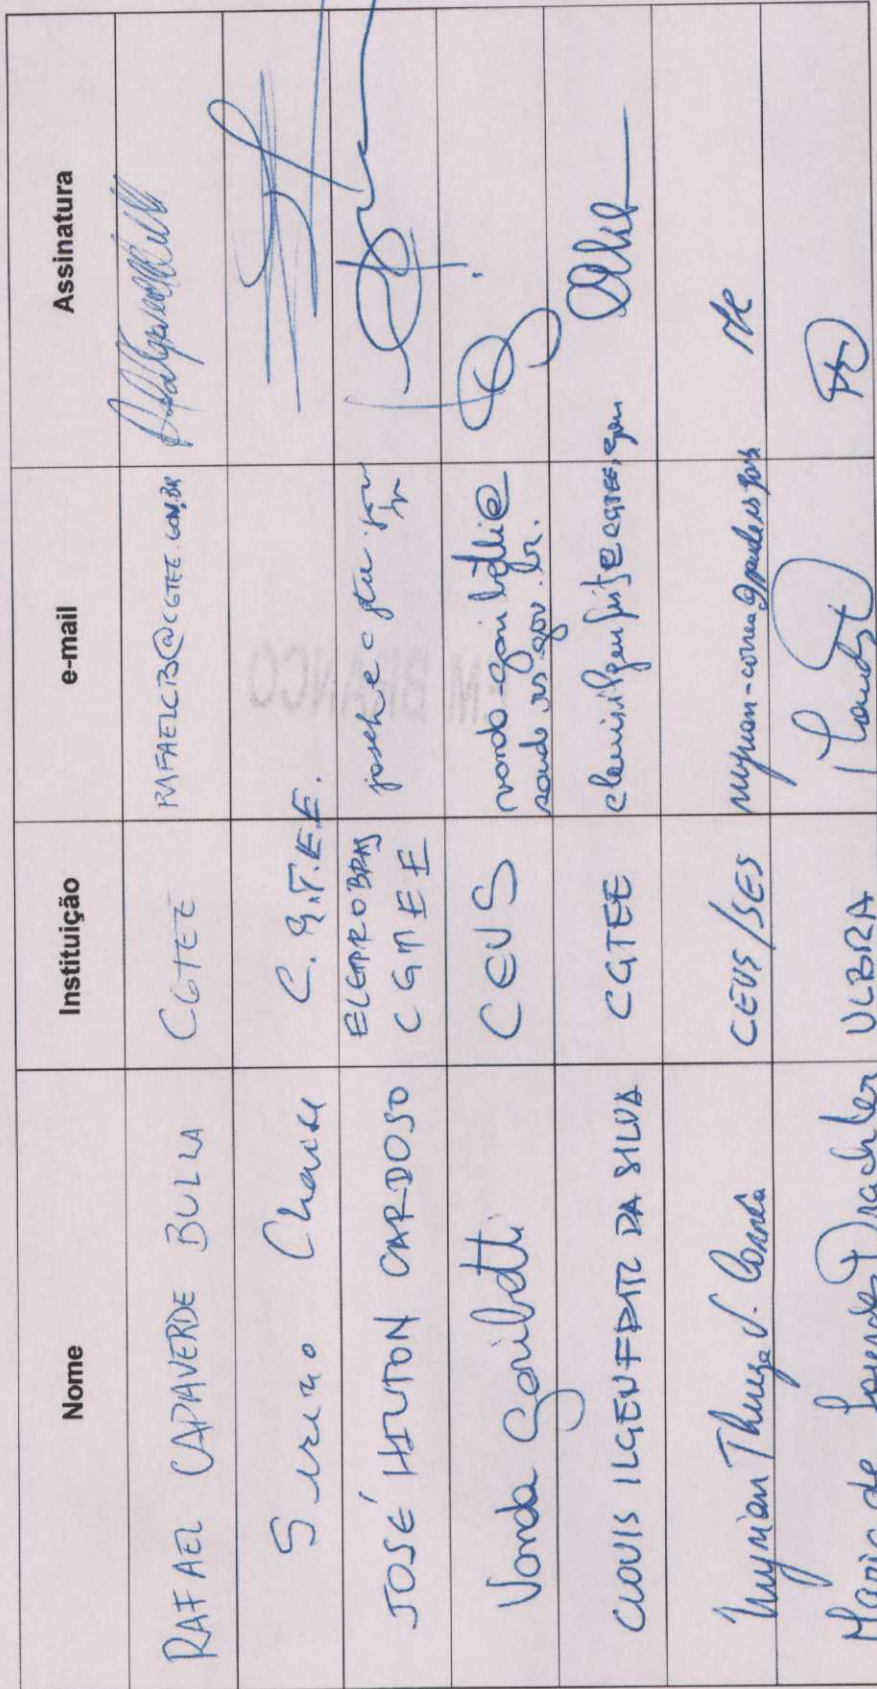 Nome Instituição e-mail Assinatura
RAFAEL CAPAVERDE BULLA CGTEE RAFAELCB@CGTEE.COM.BR
Sereno Chaise C.G.T.E.E.
JOSÉ HILTON CARDOSO ELETROBRAS
CGTEE
Vanda Garibotti CEVS vanda-garibotti@
saude.rs.gov.br.
CLOVIS ILGENFRITZ DA SILVA CGTEE clovis.ilgenfritz@cgtee.gov
Myrian Correa CEVS/SES
Maria de Lourdes Drachler ULBRA
EM BRANCO